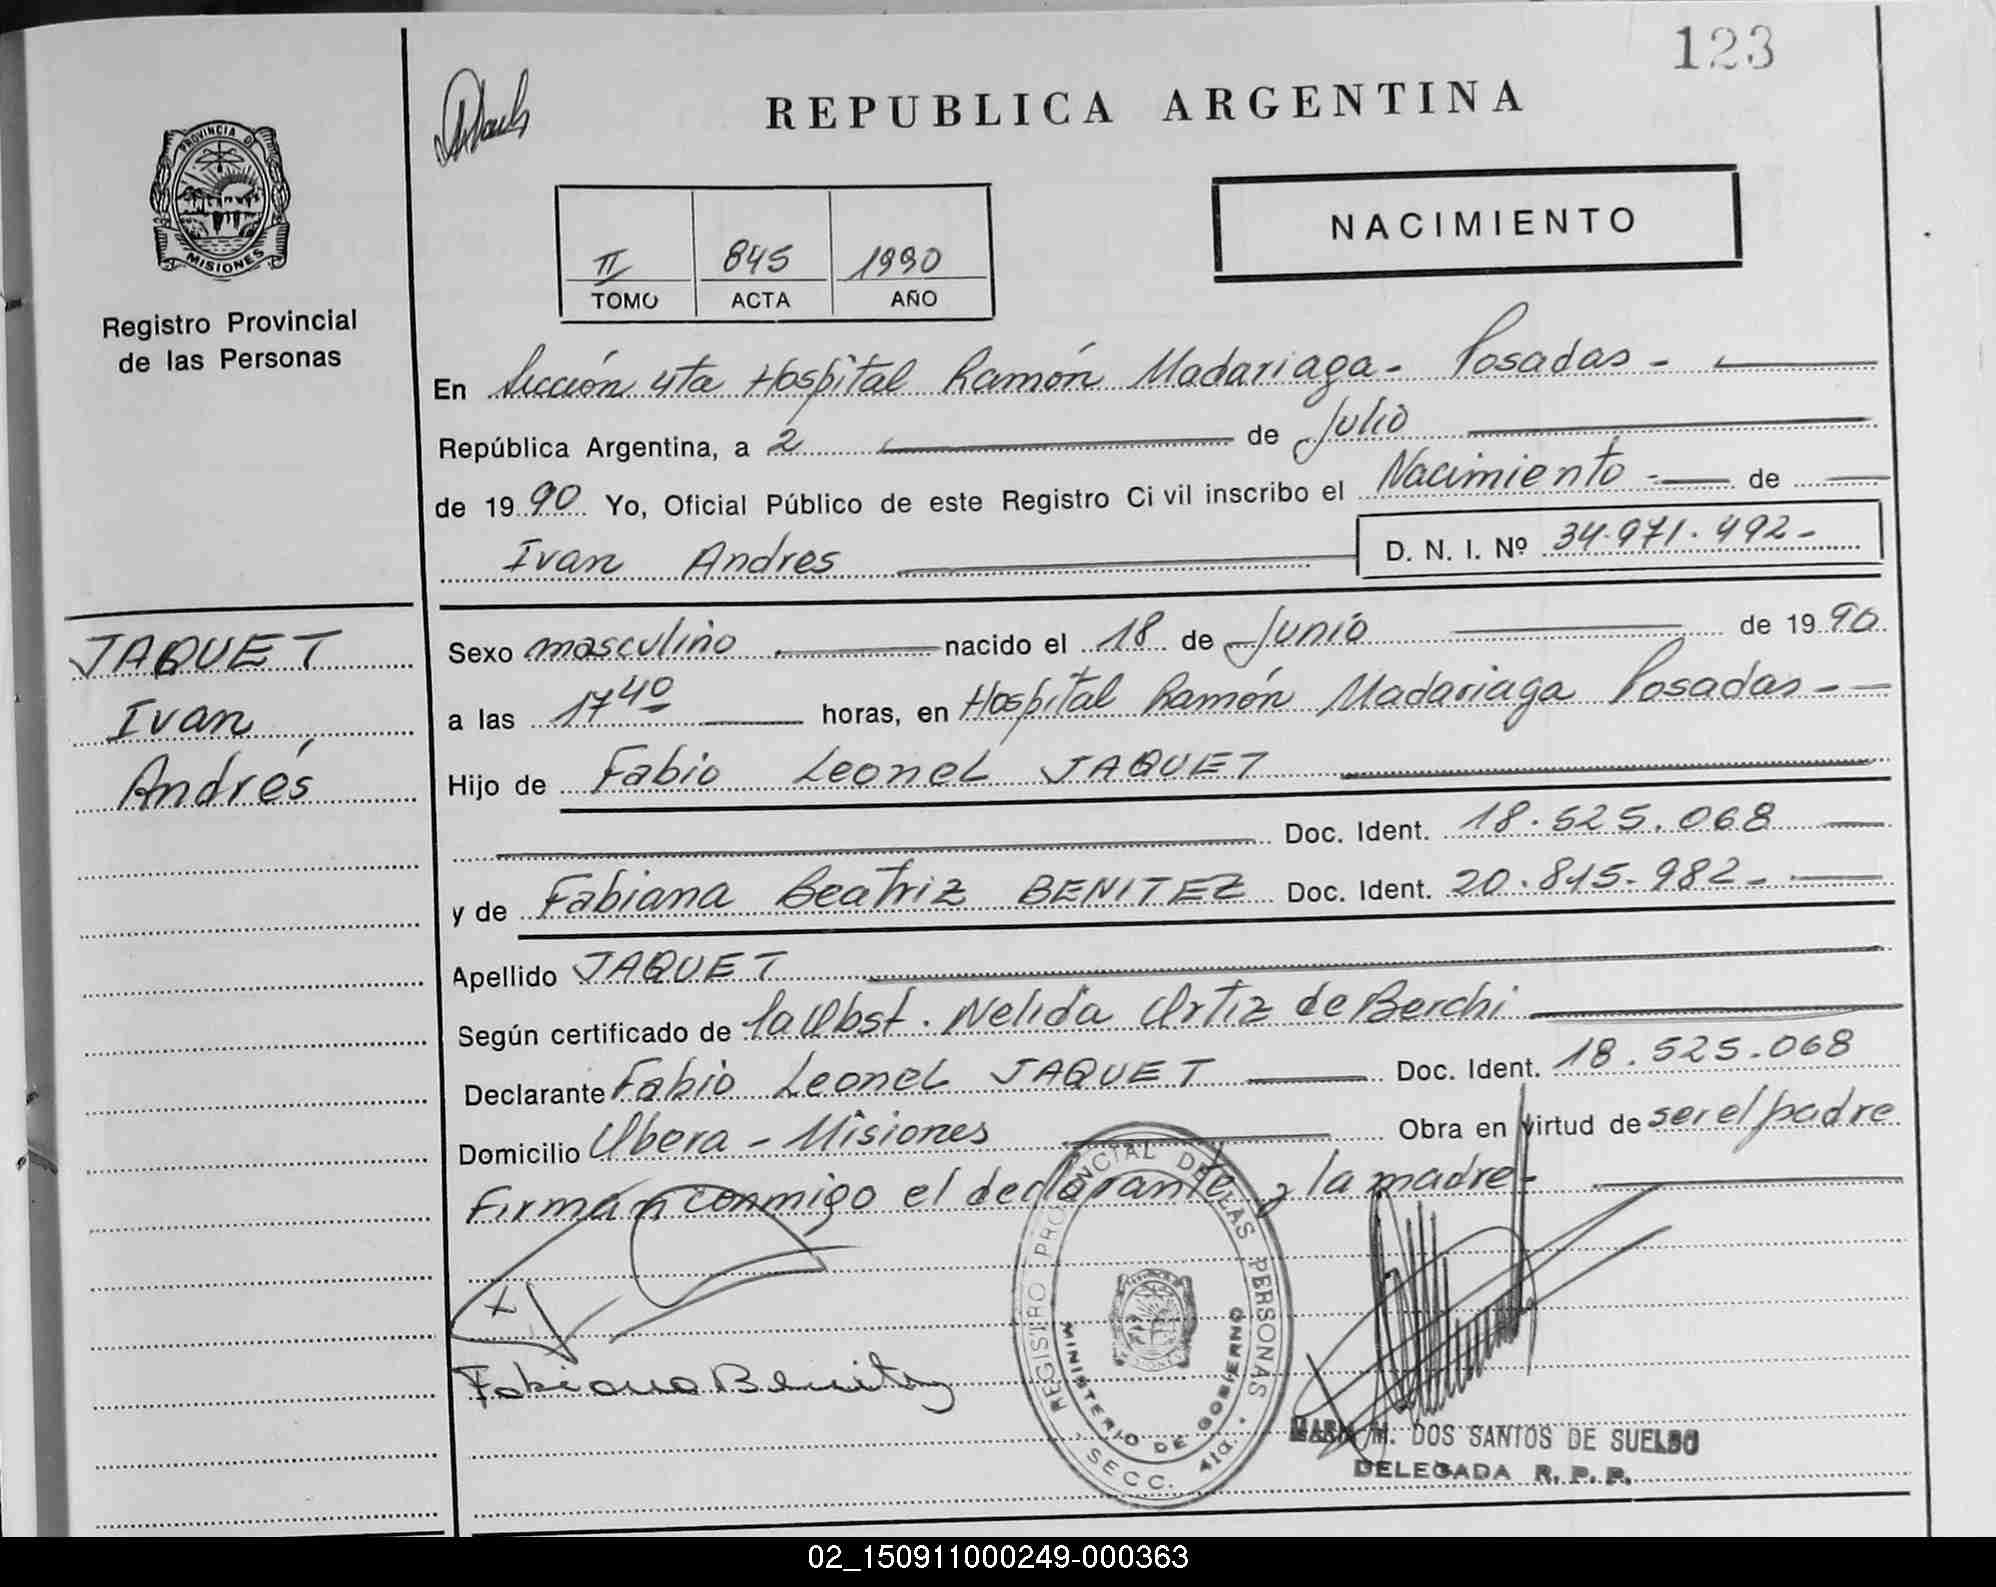 123
REPUBLICA ARGENTINA
PROVINCIA DE
MISIONES
NACIMIENTO
II 845 1990
TOMO ACTA AÑO
Registro Provincial
de las Personas
En Sección 4ta Hospital Ramón Madariaga - Posadas -
República Argentina, a 2 de Julio
de 1990 Yo, Oficial Público de este Registro Civil inscribo el Nacimiento - de
Ivan Andres D. N. I. Nº 34.971.492-
JAQUET
Ivan
Andrés
Sexo masculino nacido el 18 de Junio de 1990
a las 17 40 horas, en Hospital Ramón Madariaga Posadas -
Hijo de Fabio Leonel JAQUET
Doc. Ident. 18.525.068
y de Fabiana Beatriz BENITEZ Doc. Ident. 20.815.982-
Apellido JAQUET
Según certificado de la Obst. Nelida Ortiz de Berchi
Declarante Fabio Leonel JAQUET Doc. Ident. 18.525.068
Domicilio Obera - Misiones Obra en virtud de ser el padre
Firman conmigo el declarante y la madre-
Fabiana Benitez
REGISTRO PROVINCIAL DE LAS PERSONAS
MINISTERIO DE GOBIERNO
SECC. 4ta.
M. DOS SANTOS DE SUELDO
DELEGADA R. P. P.
02_150911000249-000363